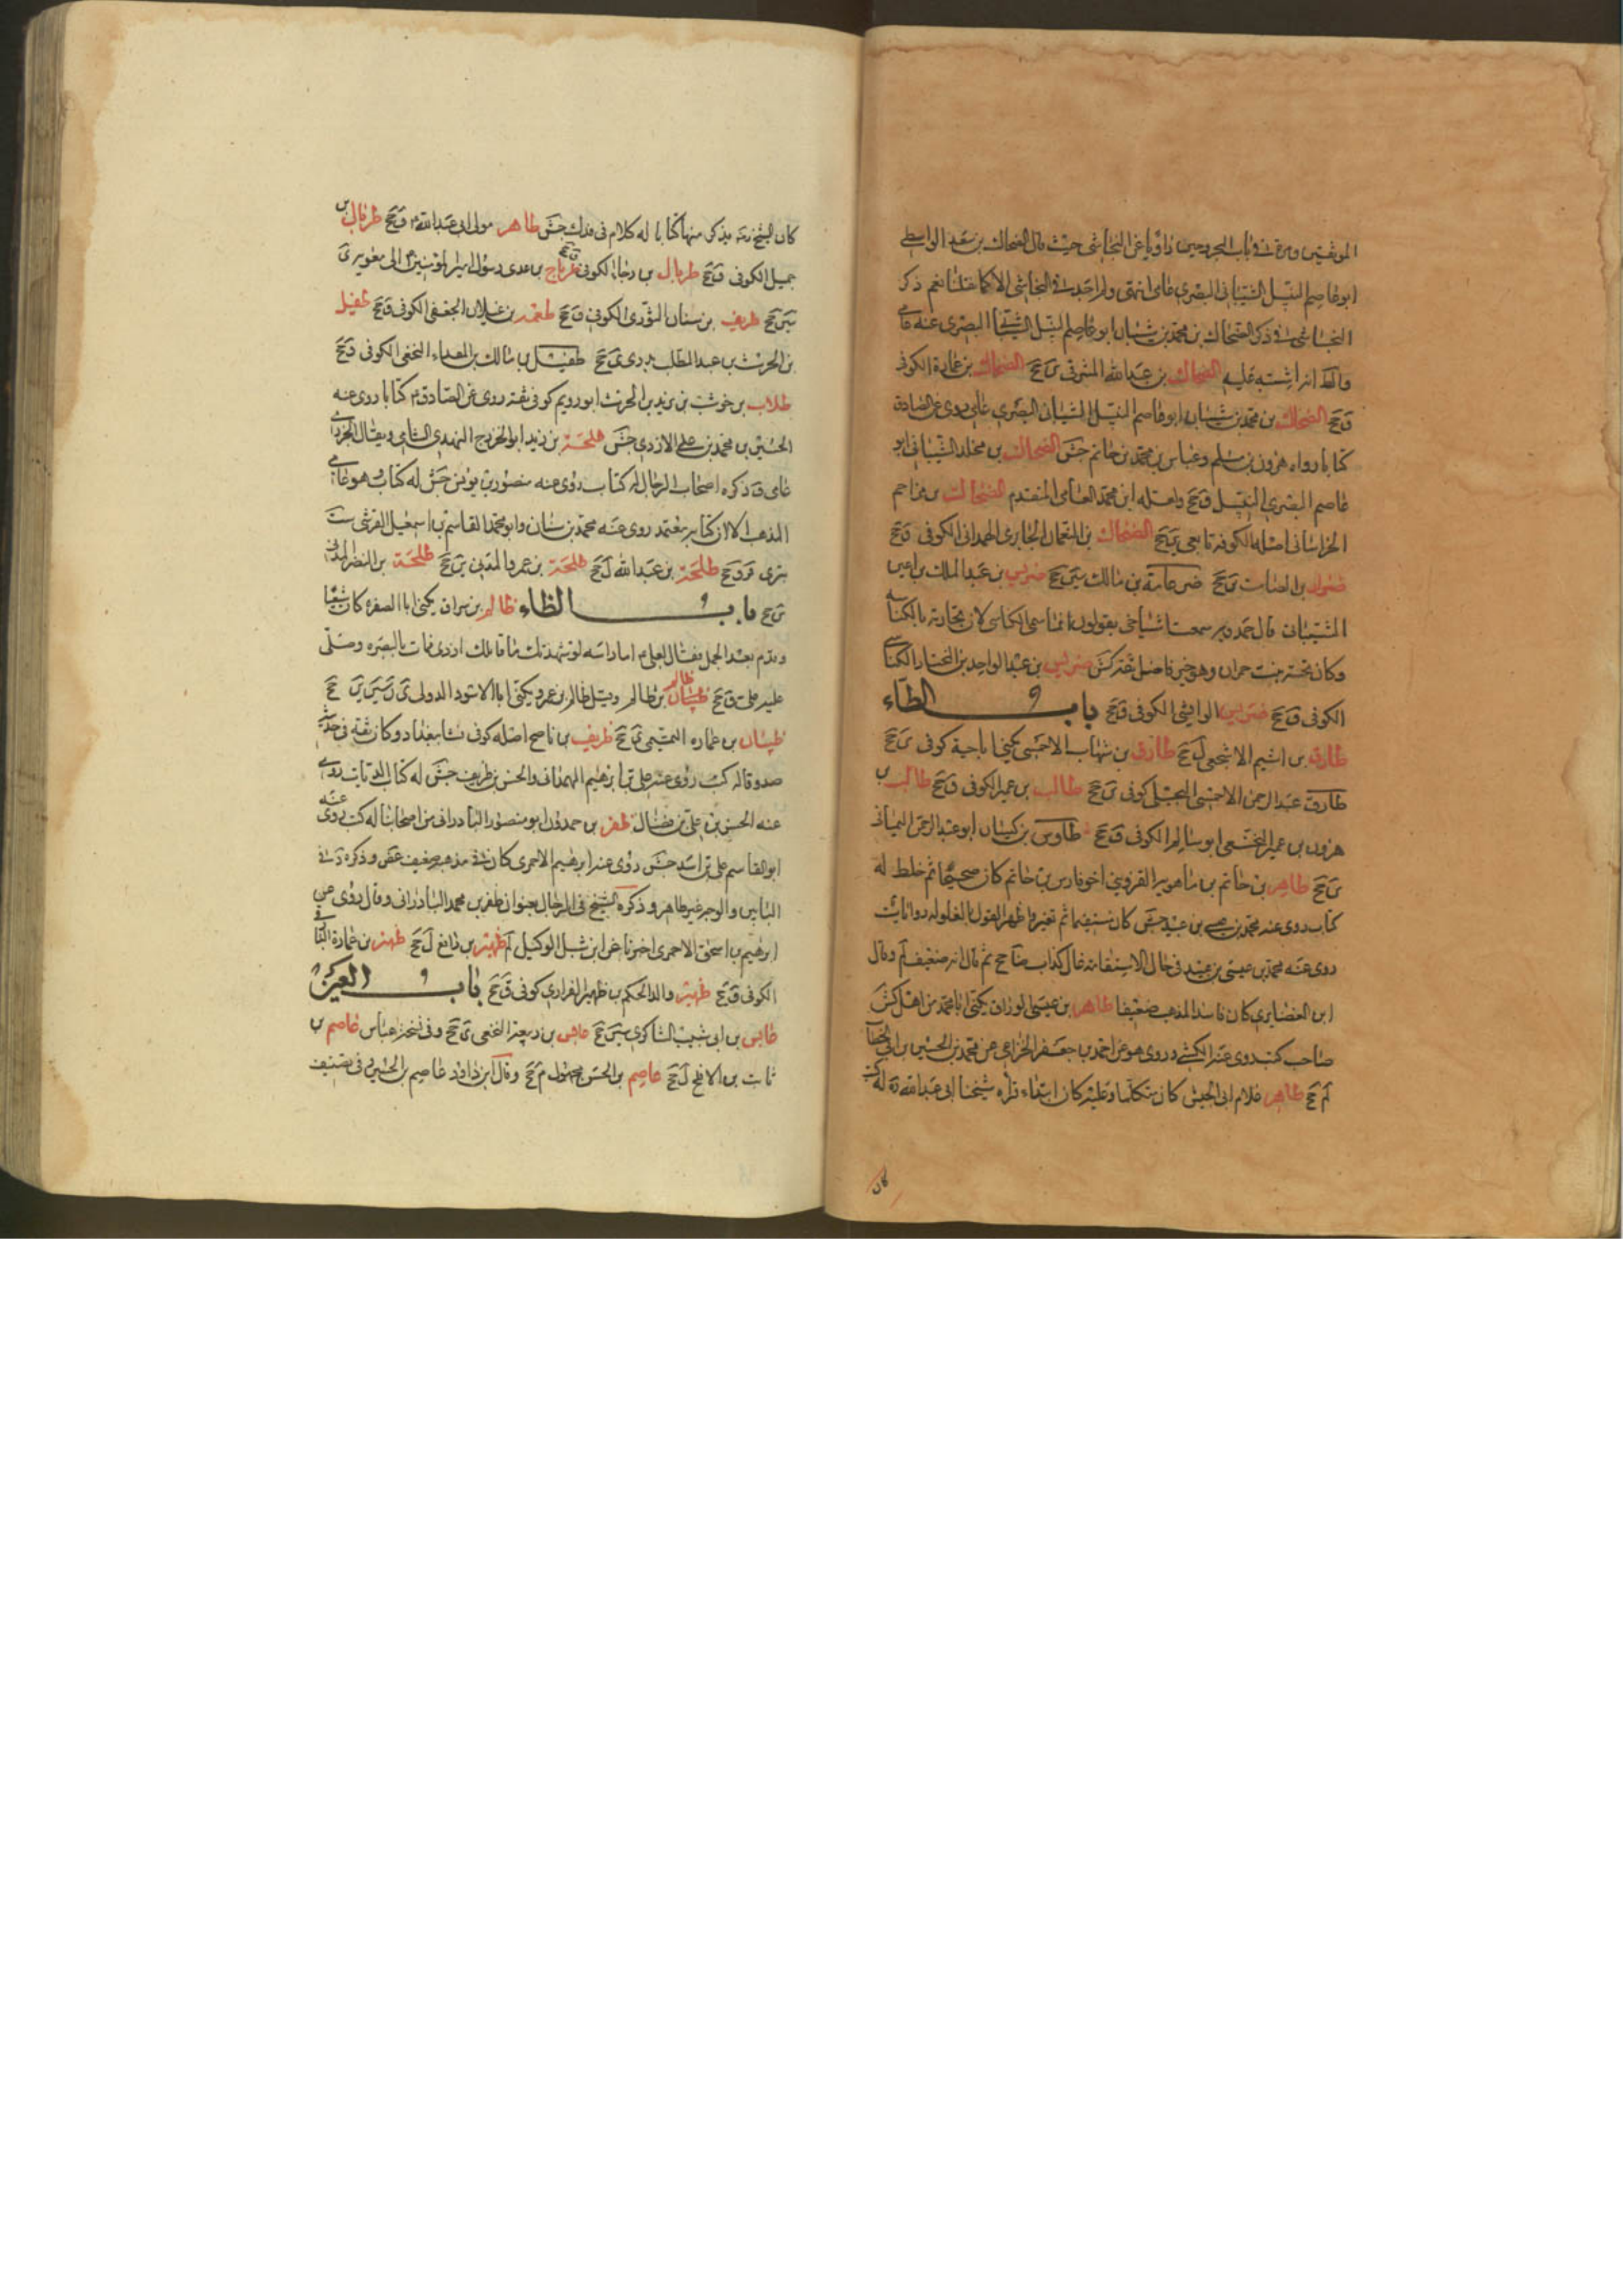 الموثقين ومرة في باب المجروحين راويا عن النجاشي حيث قال الضحاك بن سعد الواسطي
ابو عاصم النبيل الشيباني البصري عامي انتهى ولم اجد في النجاشي الا كما نقلنا نعم ذكر
النجاشي في ذكر الضحاك بن محمد بن شيبان ابو عاصم النبيل الشيباني البصري عنه عامي
والظ انه اشتبه عليه الضحاك بن عبد الله المشرقي ين جخ الضحاك بن عمارة الكوفي
ق جخ الضحاك بن محمد بن شيبان ابو عاصم النبيل الشيباني البصري عامي روى عن الصادق
كتابا رواه هرون بن مسلم وعباس بن محمد بن حاتم جش الضحاك بن مخلد الشيباني ابو
عاصم البصري النبيل ق جخ ولعله ابن محمد العامي المتقدم الضحاك بن مزاحم
الخراساني اصله الكوفة تابعي ين جخ الضحاك بن النعمان الجابري الهمداني الكوفي ق جخ
ضرار بن الصامت ين جخ ضرعامة بن مالك سين جخ ضريس بن عبد الملك بن اعين
الشيباني قال حمدويه سمعت اشياخي يقولون انما سمي الكناسي لان تجارته بالكناسة
وكان تحته بنت حمران وهو خير فاضل ثقة كش ضريس بن عبد الواحد بن المختار الكناسي
الكوفي ق جخ ضريس الوابشي الكوفي ق جخ باب الطاء
طارق بن اشيم الاشجعي ل جخ طارق بن شهاب الاحمسي يكنى ابا حية كوفي ى جخ
طارق عبد الرحمن الاحمسي البجلي كوفي ين جخ طالب بن عمير الكوفي ق جخ طالب بن
هرون بن عمير الخثعمي ابو سالم الكوفي ق جخ طاوس بن كيسان ابو عبد الرحمن اليماني
ين جخ طاهر بن حاتم بن ماهويه القزويني اخو فارس بن حاتم كان صحيحا ثم خلط له
كتاب روى عنه محمد بن عيسى بن عبيد جش كان مستقيما ثم تغير واظهر القول بالغلو له روايات
روى عنه محمد بن عيسى بن عبيد في حال الاستقامة غال كذاب ضا جخ ثم قال انه ضعيف لم وقال
ابن الغضايري كان فاسد المذهب ضعيفا طاهر بن عيسى الوراق يكنى ابا محمد من اهل كش
صاحب كتب روى عنه الكشي وروى هو عن احمد بن جعفر الخزاعي عن محمد بن الحسين بن ابي الخطاب
لم جخ طاهر غلام ابي الجيش كان متكلما وعليه كان ابتداء قراءة شيخنا ابي عبد الله ره له كتب
كان
كان الشيخ ره يذكر منها كتابا له كلام في فدك جش طاهر مولى ابي عبد الله ع ق جخ طربال بن
جميل الكوفي ق جخ طربال بن رجاء الكوفي ق جخ طرماح بن عدي رسول امير المؤمنين ع الى معوية ى
سين جخ طريف بن سنان الثوري الكوفي ق جخ طعمة بن غيلان الجعفي الكوفي ق جخ طفيل
بن الحرث بن عبد المطلب بدري ى جخ طفيل بن مالك بن المقداد النخعي الكوفي ق جخ
طلاب بن حوشب بن يزيد بن الحرث ابو رويم كوفي ثقة روى عن الصادق ع كتابا روى عنه
الحسين بن محمد بن علي الازدي جش طلحة بن زيد ابو الخزرج النهدي الشامي ويقال الخزري
عامي ق ذكره اصحاب الرجال له كتاب روى عنه منصور بن يونس جش له كتاب وهو عامي
المذهب الا ان كتابه معتمد روى عنه محمد بن سنان وابو محمد القاسم بن اسمعيل القرشي ست
بتري قر جخ طلحة بن عبد الله ل جخ طلحة بن عمرو المدني ين جخ طلحة بن النضر المدني
ين جخ باب الظاء ظالم بن سراق يكنى ابا الصفرة كان شيعيا
وقدم بعد الجمل فقال لعلي ع اما والله لو شهدتك ما قاتلك ازدي فمات بالبصرة وصلى
عليه علي ع ق جخ ظالم بن ظالم وقيل ظالم بن عمرو يكنى ابا الاسود الدؤلي ى ن سين ين جخ
ظبيان بن عماره التميمي ى جخ ظريف بن ناصح اصله كوفي نشا ببغداد وكان ثقة في حديثه
صدوقا له كتب روى عنه علي بن ابرهيم الهمداني والحسن بن ظريف جش له كتاب الديات روى
عنه الحسن بن علي بن فضال ظفر بن حمدون ابو منصور البادرائي من اصحابنا له كتب روى عنه
ابو القاسم علي بن اسد جش روى عنه ابرهيم الاحمري كان في مذهبه ضعف غض وذكره د في
البابين والوجه غير ظاهر وذكره الشيخ في الرجال بعنوان ظفر بن محمد البادرائي وقال روى عن
ابرهيم بن اسحق الاحمري اخبرنا عنه ابن شبل الوكيل لم ظهير بن رافع ل جخ ظهير بن عمارة
الكوفي ق جخ ظهير والد الحكم بن ظهير الفزاري كوفي ق جخ باب العين
عابس بن ابي شبيب الشاكري سين جخ عابس بن ربيعة النخعي ى جخ وفي نسخة عباس عاصم بن
ثابت بن الافلح ل جخ عاصم بن الحسن مجهول م جخ وقال ابن داود عاصم بن الحسين في تصنيف